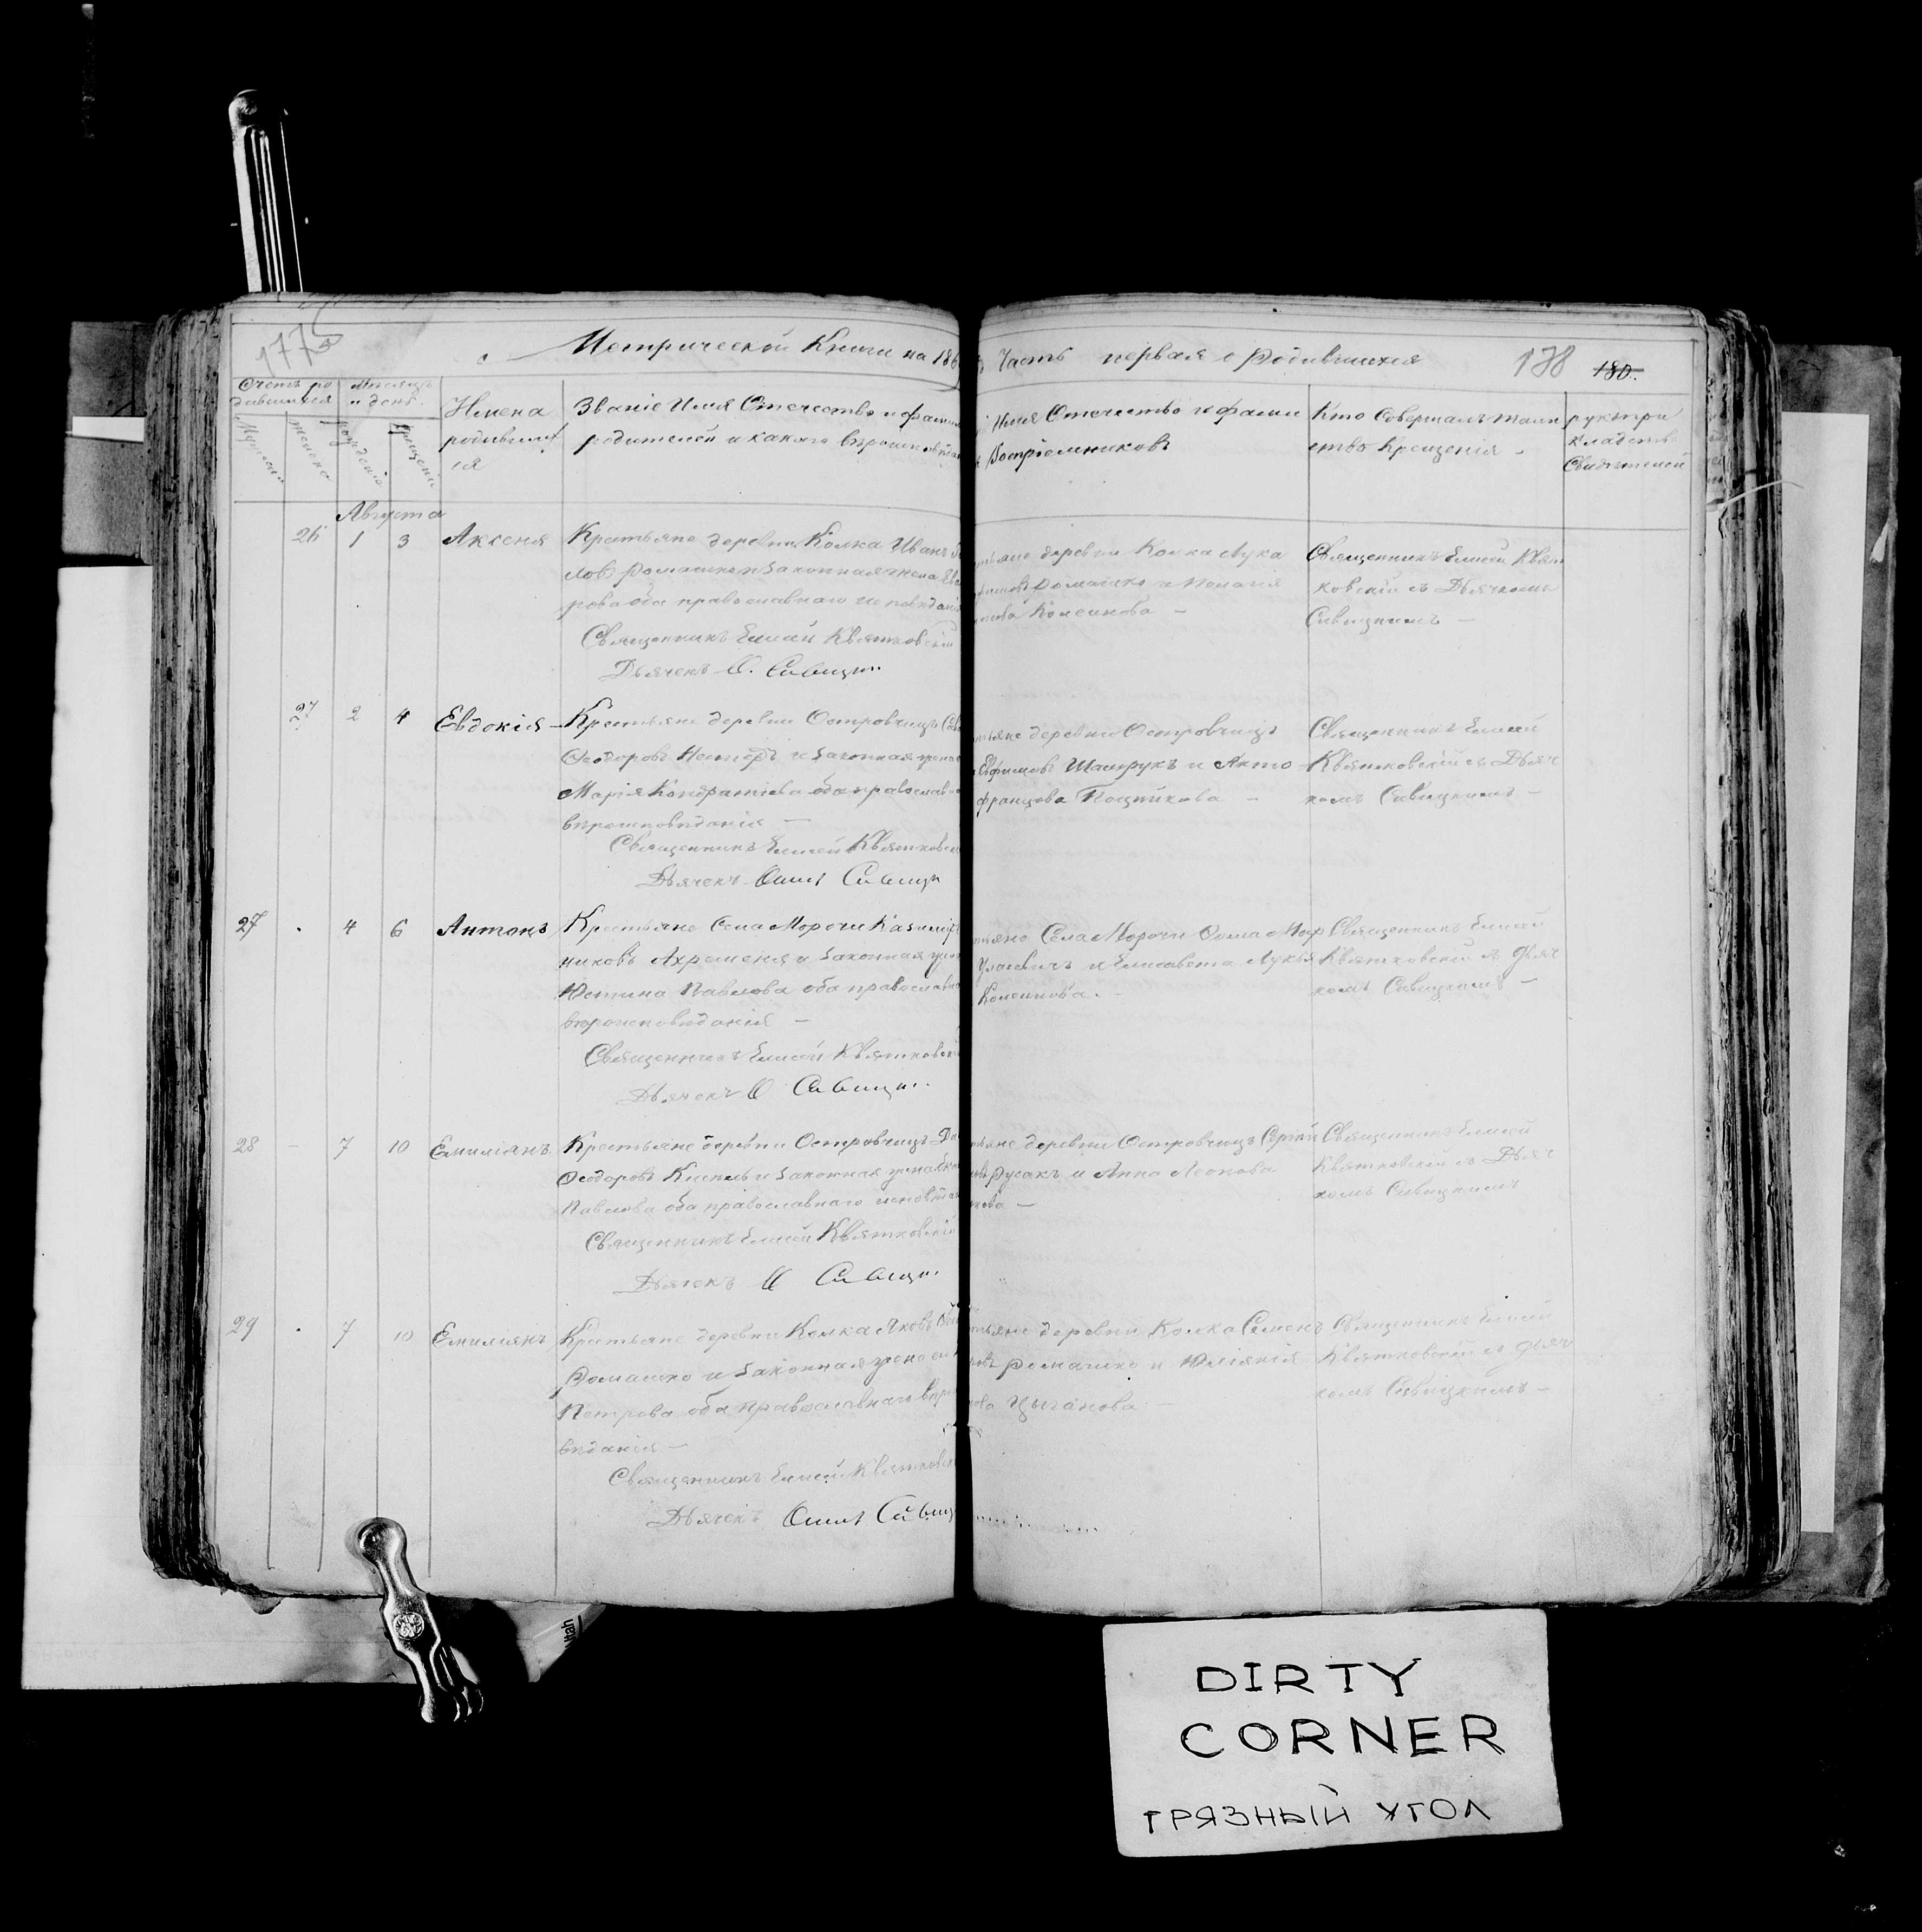 177
Метрической Книги на 186
Часть первая о Родившихся
178 180.
Счетъ ро
дившихся
Мѣсяцъ
и день.
Имена
родивших
ся
Званіе Имя Отечество и фамил
родителей и какого вѣроисповѣдан
Имя Отечество и фами
Воспріемниковъ
Кто Совершалъ Таин
ство Крещенія
рукопри
кладство
Свидѣтелей
женска
рожденія
крещенія
Августа
26 1 3 Аксенія
Крестьяне деревни Колка Иванъ
ловъ Ромашко и Законная жена
рова оба православнаго исповѣданія
Священникъ Елисей Квятковскій
Дьячекъ О. Савицкі
деревни Колка Лука
Ромашко и Пелагія
Колесникова —
Священникъ Елисей Квят
ковскій съ Дьячкомъ
Савицкимъ —
27 2 4 Евдокія —
Крестьяне деревни Островчицъ
Ѳеодоровъ Нестеръ и Законная жена
Марія Кондратіева оба православна
вѣроисповѣданія —
Священникъ Елисей Квятковск
Дьячекъ Осипъ Савицк
деревни Островчицъ
Шамрукъ и Анто
францова —
Священникъ Елисей
Квятковскій съ Дьяч
комъ Савицкимъ —
27 . 4 6 Антонъ
Крестьяне Села Морочи Казимір
Ахременя и Законная жен
Юстина Павлова оба православна
вѣроисповѣданія —
Священникъ Елисей Квятковскі
Дьячекъ О Савицкі.
Села Морочи Ѳома Мар
и Елисавета Лукья
Священникъ Елисей
Квятковскій съ Дьяч
комъ Савицкимъ —
28 — 7 10 Емиліянъ
Крестьяне деревни Островчицъ
Ѳеодоровъ Кисель и Законная жена
Павлова оба православнаго исповѣдан
Священникъ Елисей Квятковскій
Дьячекъ О Савицкі
деревни Островчицъ Сергій
Русакъ и Анна Леонова
Священникъ Елисей
Квятковскій съ Дьяч
комъ Савицкимъ
29 . 7 10 Емиліянъ
Крестьяне деревни Колка Яковъ
Ромашко и Законная жена
Петрова оба православнаго вѣро
вѣданія —
Священникъ Елисей Квятковск
Дьячекъ Осипъ Савиц
деревни Колка Семенъ
Ромашко и Юліянія
Цыганова —
Священникъ Елисей
Квятковскій съ Дьяч
комъ Савицкимъ —
Utah
DIRTY
CORNER
ГРЯЗНЫЙ УГОЛ